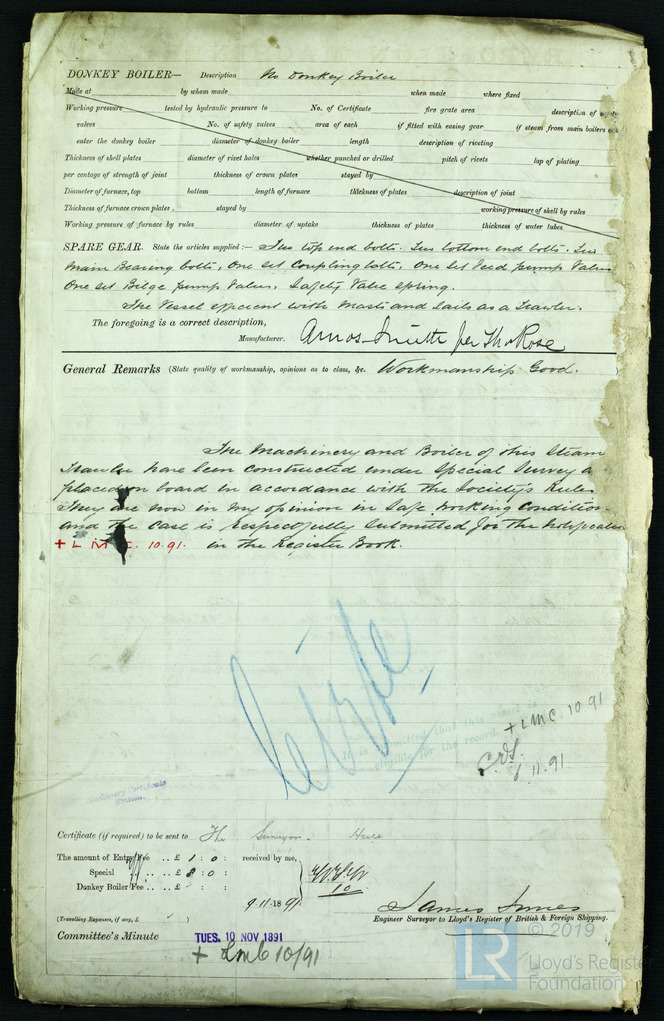 DONKEY BOILER— Description No Donkey Boiler
Made at by whom made when made where fixed
Working pressure tested by hydraulic pressure to No. of Certificate fire grate area description of safety
valves No. of safety valves area of each if fitted with easing gear if steam from main boilers can
enter the donkey boiler diameter of donkey boiler length description of riveting
Thickness of shell plates diameter of rivet holes whether punched or drilled pitch of rivets lap of plating
per centage of strength of joint thickness of crown plates stayed by
Diameter of furnace, top bottom length of furnace thickness of plates description of joint
Thickness of furnace crown plates stayed by working pressure of shell by rules
Working pressure of furnace by rules diameter of uptake thickness of plates thickness of water tubes
SPARE GEAR. State the articles supplied:— Two top end bolts. Two bottom end bolts. Two
Main Bearing bolts, One set Coupling bolts, One set Feed pump Valves
One set Bilge pump Valves, Safety Valve Spring.
The Vessel efficient with Masts and Sails as a Trawler.
The foregoing is a correct description,
Manufacturer. Amos & Smith per Tho Rose
General Remarks (State quality of workmanship, opinions as to class, &c. Workmanship Good.
The Machinery and Boiler of this Steam
Trawler have been constructed under Special Survey &
placed on board in accordance with the Society's Rules
They are now in my opinion in Safe Working Condition
and the case is respectfully submitted for the Notification
+ L M C. 10.91. in the Register Book.
It is submitted that this vessel is
eligible for the record.
+ LMC. 10.91
6.11.91
Machinery Certificate
Written.
Certificate (if required) to be sent to The Surveyor. Hull
The amount of Entry Fee . . £ 1 : 0 : received by me,
Special . . £ 8 : 0 :
Donkey Boiler Fee . . £
9.11.1891
(Travelling Expenses, if any, £ )
James Innes
Engineer Surveyor to Lloyd's Register of British & Foreign Shipping.
Committee's Minute TUES. 10 NOV 1891
+ LMC 10/91
LR
© 2019
Lloyd's Register
Foundation